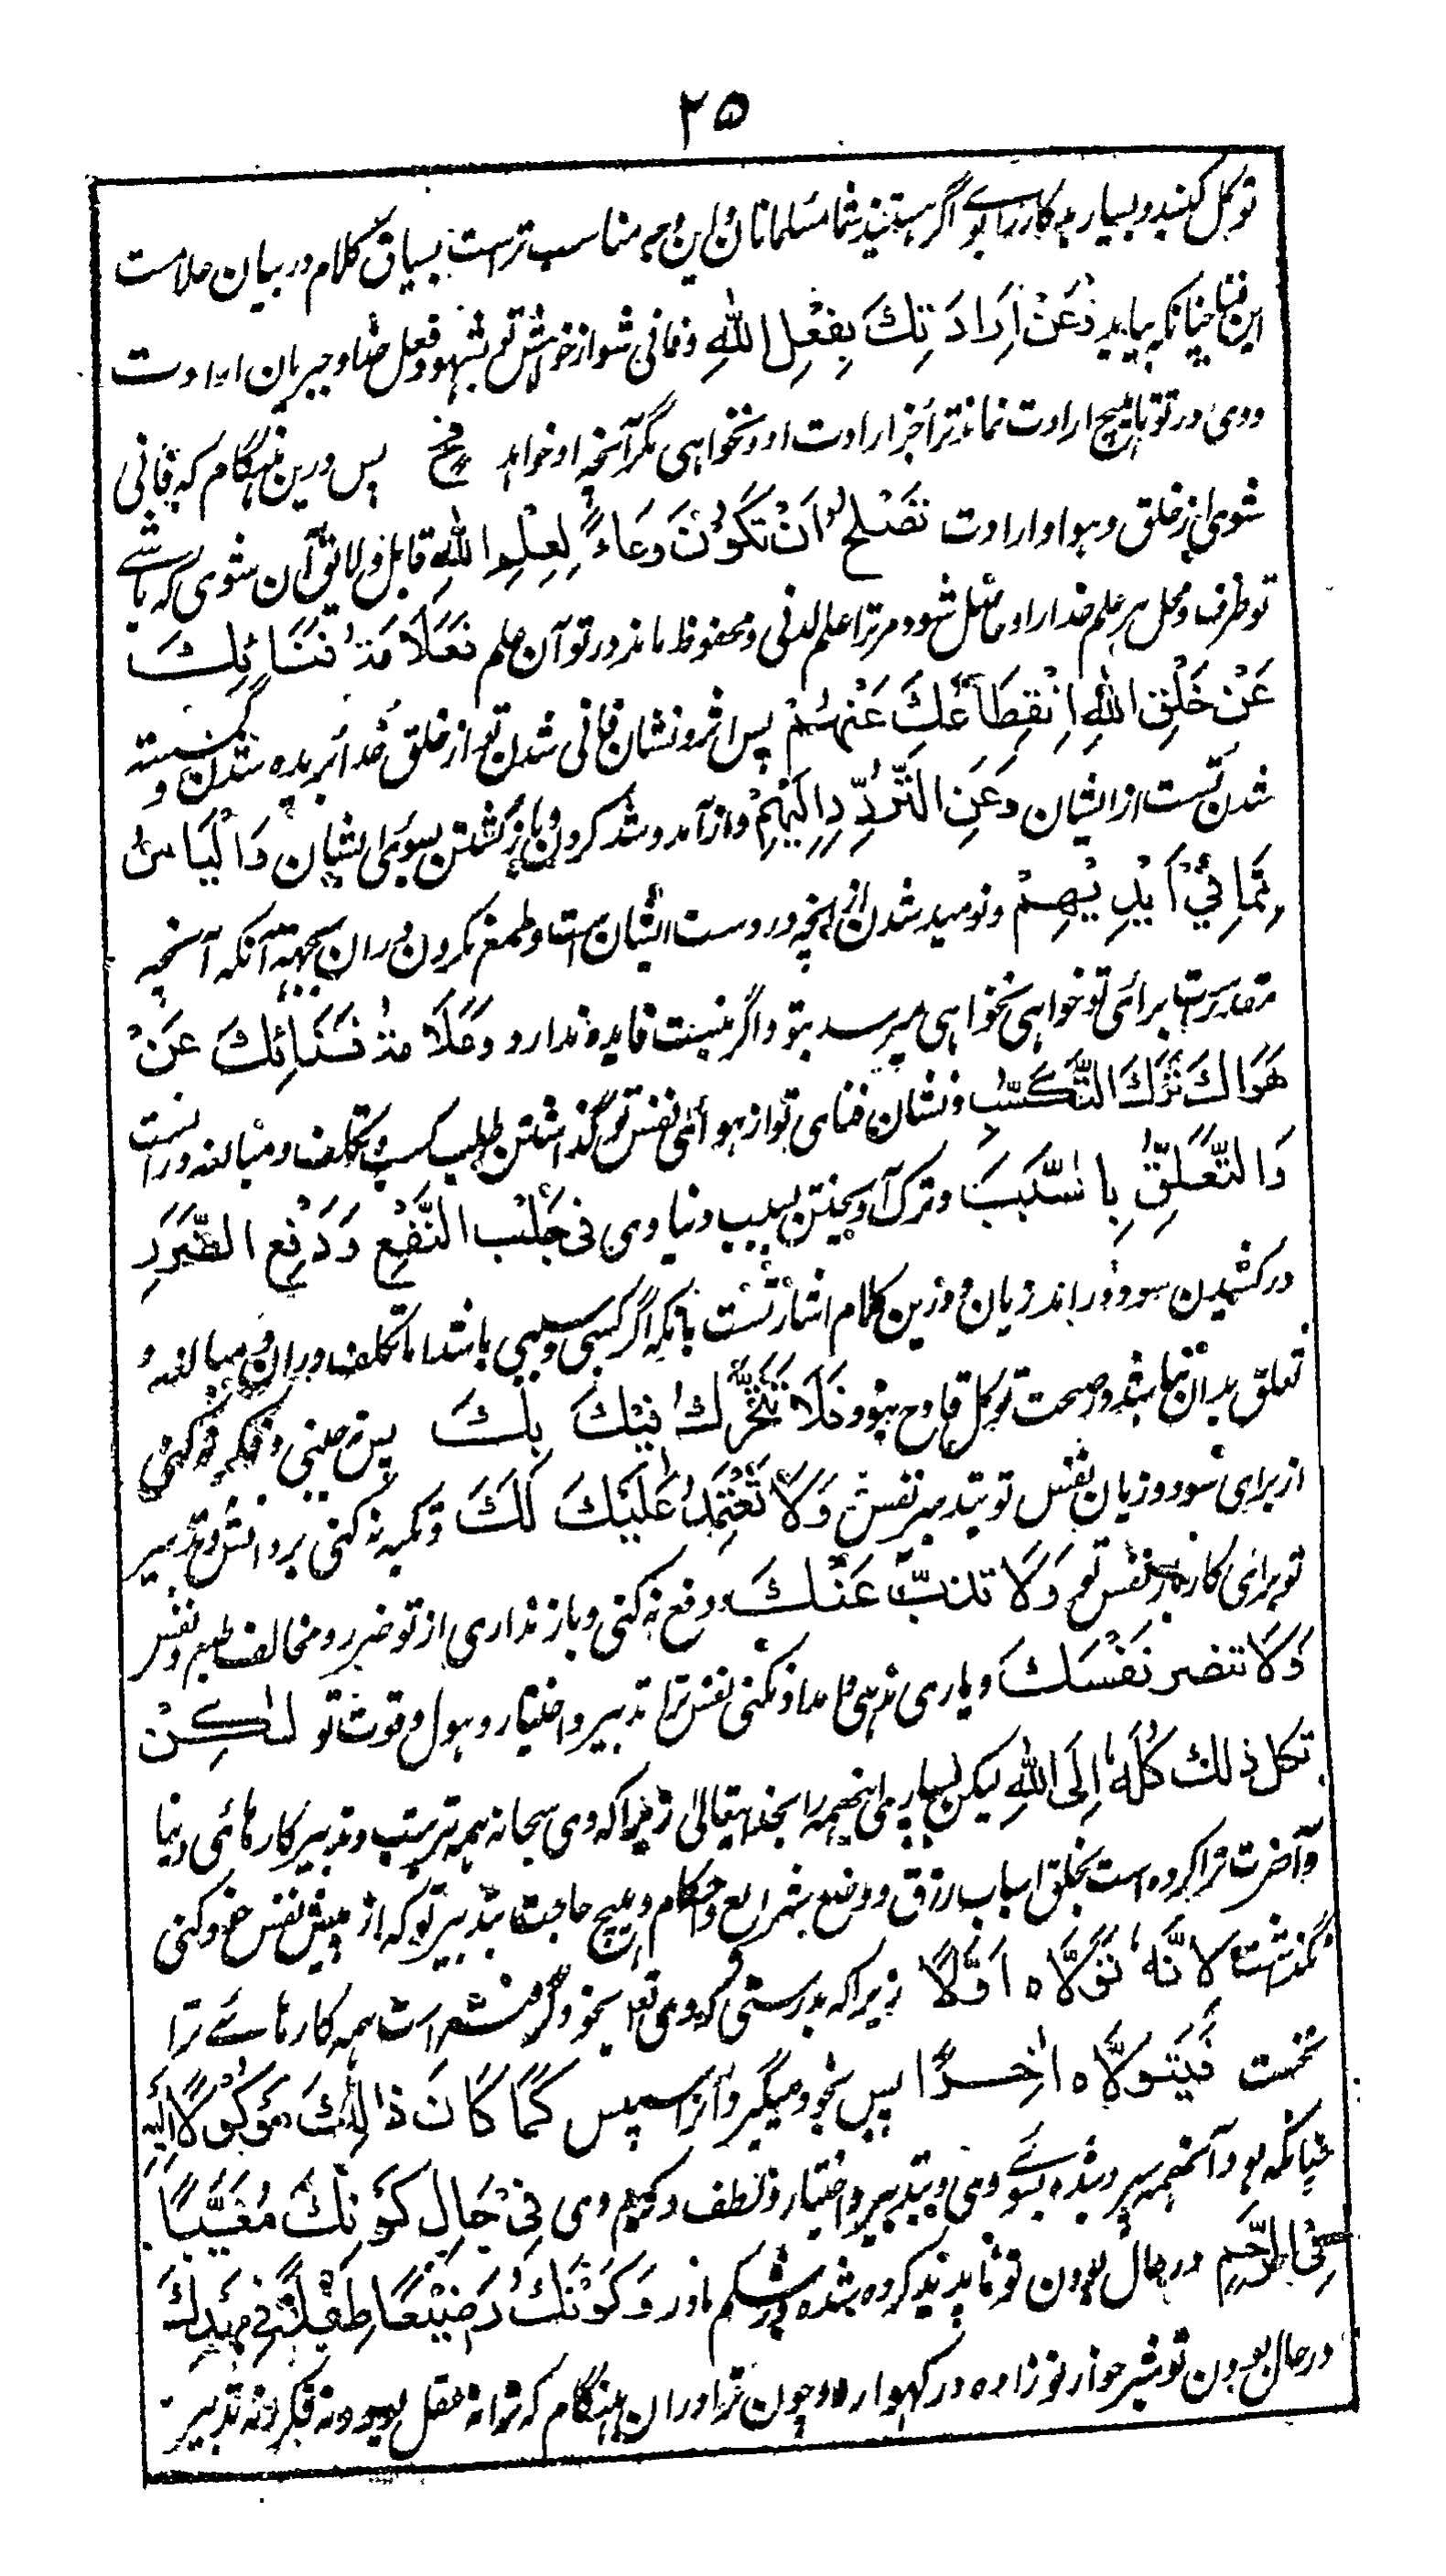 ۲۵
توکل کنید و بسپارید کارها بوے اگر هستید شما مسلمانان و این وجه مناسب ترست بسیاق کلام در بیان علامت
این فنا چنانکه بیاید وَعَنْ اِرَادَتِكَ بِفِعْلِ اللهِ و فانی شو از خواهش تو بشهود فعل خدا و جریان ارادت
ووی در تو تا هیچ ارادت نماند ترا جز ارادت او و نخواهی مگر آنچه او خواهد فح پس درین هنگام که فانی
شوی از خلق و هوا و ارادت تَصْلُحُ اَنْ تَكُوْنَ وِعَاءً لِعِلْمِ اللهِ قابل و لائق آن شوی که باشے
تو ظرف و محل هر علم خدا را و حاصل شود مر ترا علم لدنی و محفوظ ماند در تو آن علم فَعَلَامَةُ فَنَائِكَ
عَنْ خَلْقِ اللهِ اِنْقِطَاعُكَ عَنْهُمْ پس اثر و نشان فانی شدن تو از خلق خدا بریده شدن و گسسته
شدن تست از ایشان وَعَنِ التَّرَدُّدِ اِلَيْهِمْ و از آمد و شد کردن و باز گشتن بسوی ایشان وَالْيَاسُ
مِمَّا فِيْ اَيْدِيْهِمْ و نومید شدن از انچه در دست ایشان ست و طمع نکردن دران بجهت آنکه آنچه
مقدرست برای تو خواهی نخواهی میرسد بتو و اگر نیست فایده ندارد وَعَلَامَةُ فَنَائِكَ عَنْ
هَوَاكَ تَرْكُ التَّكَسُّبِ و نشان فنای تو از هوائی نفس تو گذاشتن طلب کسب و تکلف و مبالغه درانست
وَالتَّعَلُّقِ بِالسَّبَبِ و ترک آویختن بسبب دنیاوی فی جَلْبِ النَّفْعِ وَدَفْعِ الضَّرَرِ
در کشیدن سود و دور راندن زیان و درین کلام اشارتست بانکه اگر کسبی و سببی باشد اما تکلف دران و مبالغه و
تعلق بدان نباشد در صحت توکل قادح نبود فَلَا تَتَحَرَّكُ فِيْكَ بِكَ پس نه جنبی و فکر نه کنی
از برای سود و زیان نفس تو بتدبیر نفس وَلَا تَعْتَمِدُ عَلَيْكَ لَكَ و تکیه نه کنی بر دانش و تدبیر
تو برای کارهاے نفس تو وَلَا تَذُبُّ عَنْكَ و دفع نه کنی و باز نداری از تو ضرر و مخالف طبع و نفس
وَلَا تَنْصُر نَفْسَكَ و یاری ندهی و امداد نکنی نفس ترا بتدبیر و اختیار و حول و قوت تو لٰكِنْ
تَكِلُ ذٰلِكَ كُلَّهٗ اِلَى اللهِ لیکن بسپاری اینهمه را بخدایتعالی زیرا که وی سبحانه همه ترتیب و تدبیر کارهائی دنیا
و آخرت ترا کرده است بخلق اسباب رزق و وضع شرایع و احکام و هیچ حاجت بتدبیر تو که از پیش نفس خود کنی
نگذاشته لِاَنَّهٗ تَوَلَّاهُ اَوَّلًا زیرا که بدرستی که وی تعالی بخود گرفته است همه کارهائے ترا
نخست فَيَتَوَلَّاهُ اٰخِرًا پس بخود میگیرد آنرا سپس كَمَا كَانَ ذٰلِكَ مَوْكُوْلًا اِلَيْهِ
چنانکه بود آنهمه سپرده شده بسوے وی و بتدبیر و اختیار و لطف و کرم وی فِيْ حَالِ كَوْنِكَ مُغَيَّبًا
فِي الرَّحِمِ در حال بودن تو ناپدید کرده شده در شکم مادر وَكَوْنِكَ رَضِيْعًا طِفْلًا فِيْ مَهْدِكَ
در حال بودن تو شیرخوار نوزاده در گهواره و چون ترا دران هنگام که ترا نه عقل بود و نه فکر و نه تدبیر